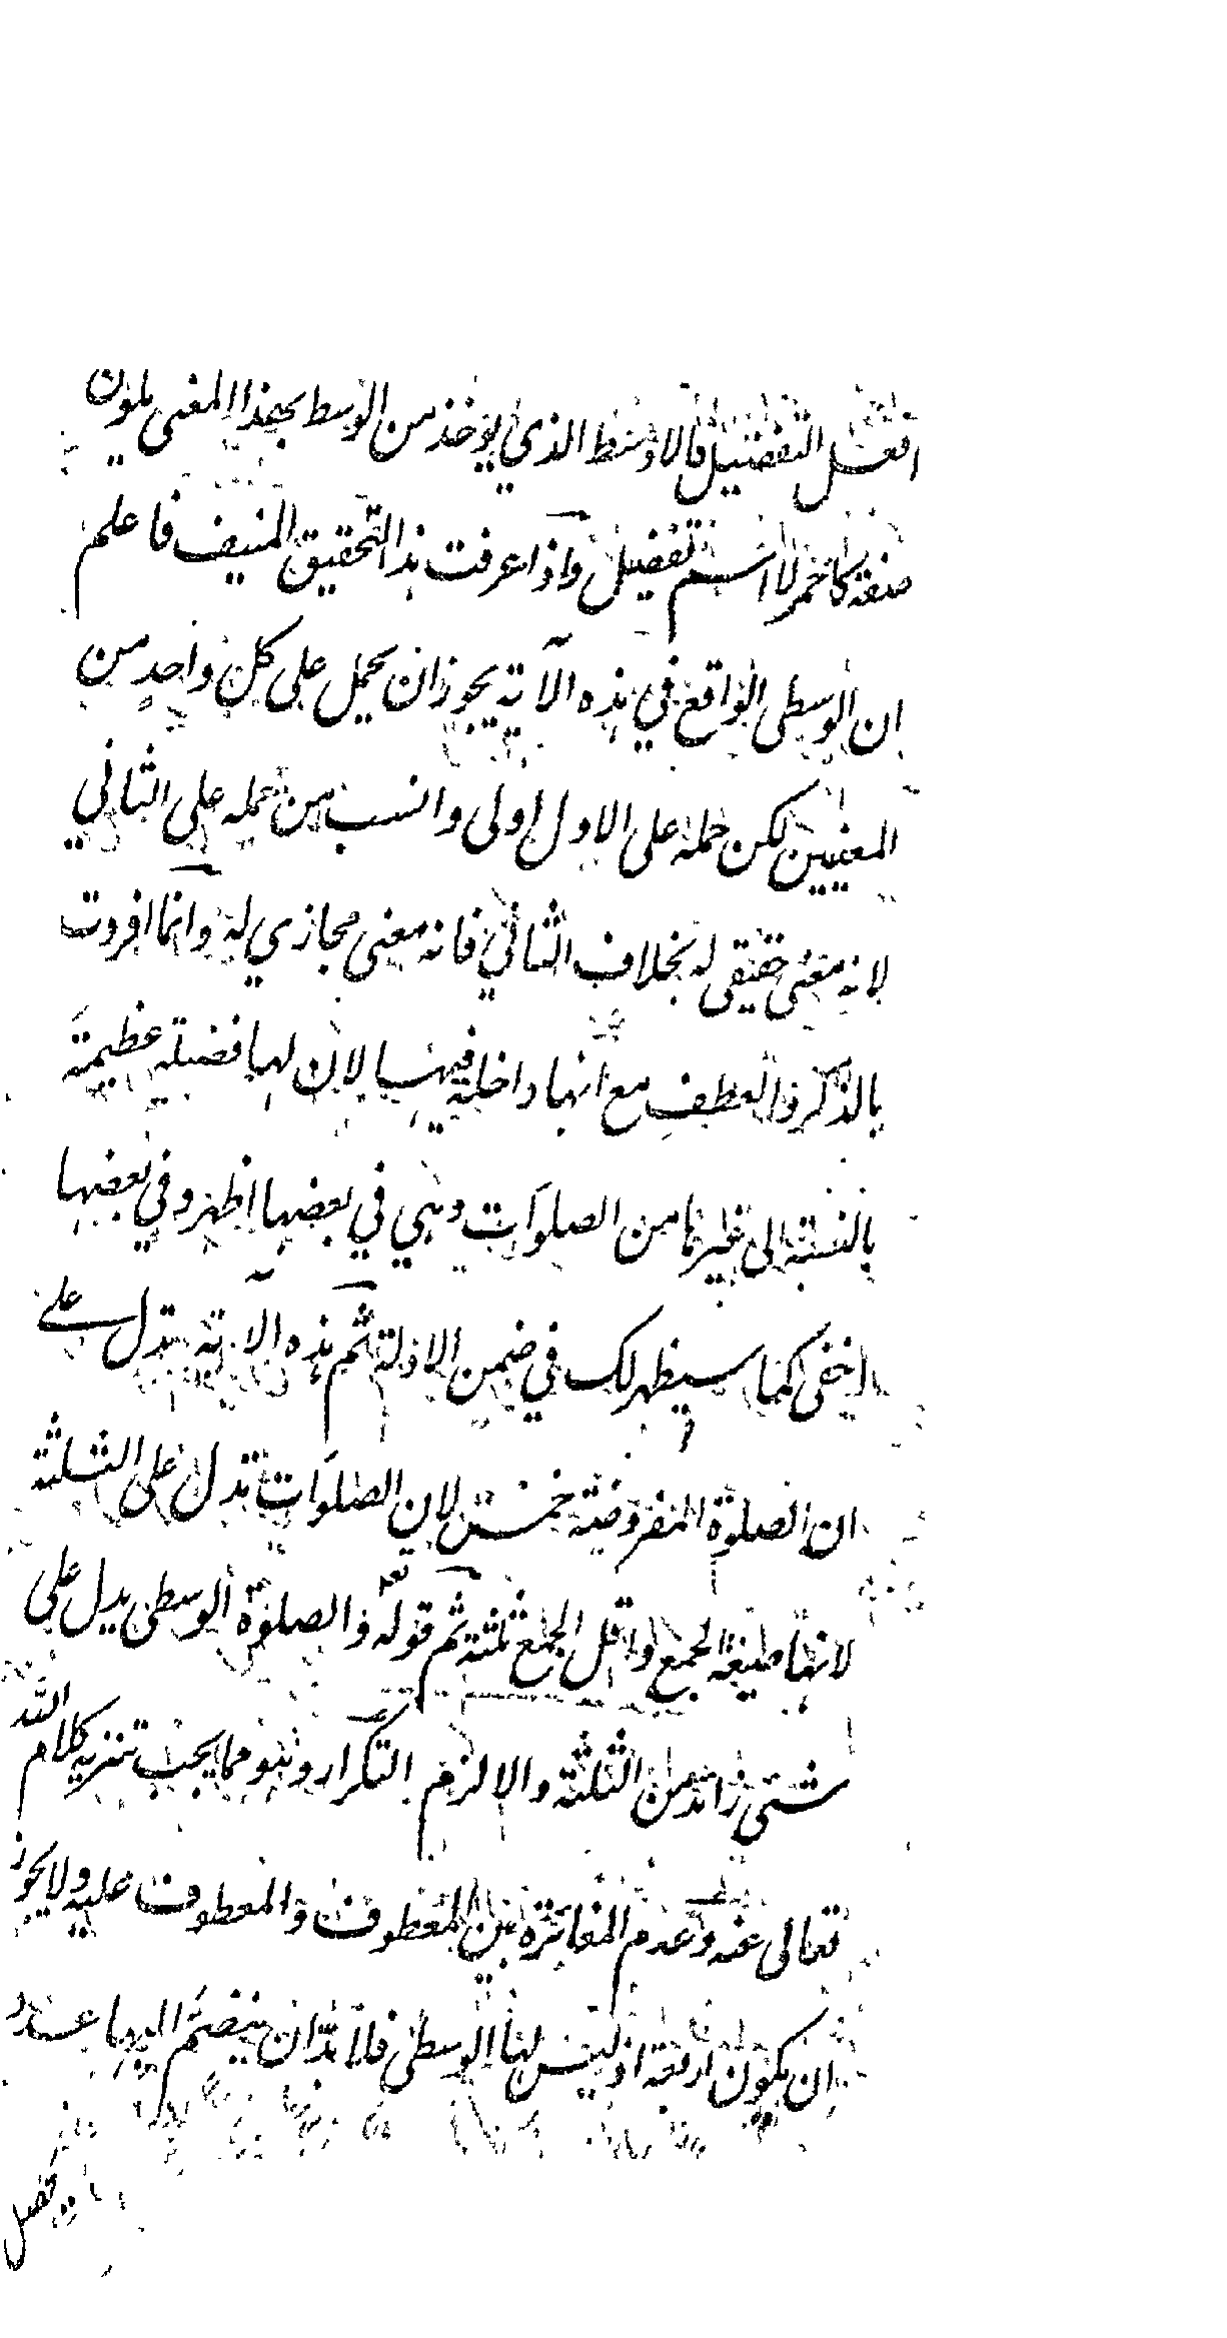 افعل التفضيل فالاوسط الذي يؤخذ من الوسط بهذا المعنى يكون
صفة كاحمر لا اسم تفضيل واذا عرفت هذا التحقيق المنيف فاعلم
ان الوسطى الواقع في هذه الآية يجوز ان يحمل على كل واحد من
المعنيين لكن حمله على الاول اولى وانسب من حمله على الثاني
لانه معنى حقيقى له بخلاف الثاني فانه معنى مجازي له وانما افردت
بالذكر والعطف مع انها داخلة فيها لان لها فضيلة عظيمة
بالنسبة الى غيرها من الصلوات وهي في بعضها اظهر وفي بعضها
اخفى كما سيظهر لك في ضمن الادلة ثم هذه الآية تدل على
ان الصلوة المفروضة خمس لان الصلوات تدل على الثلثة
لانها صيغة الجمع واقل الجمع ثلثة ثم قوله تع والصلوة الوسطى يدل على
شئ زائد من الثلثة والا لزم التكرار وهو مما يجب تنزيه كلام الله
تعالى عنه وعدم المغائرة بين المعطوف والمعطوف عليه ولا يجوز
ان يكون اربعة اذ ليس لها الوسطى فلا بد ان ينضم اليها عدد